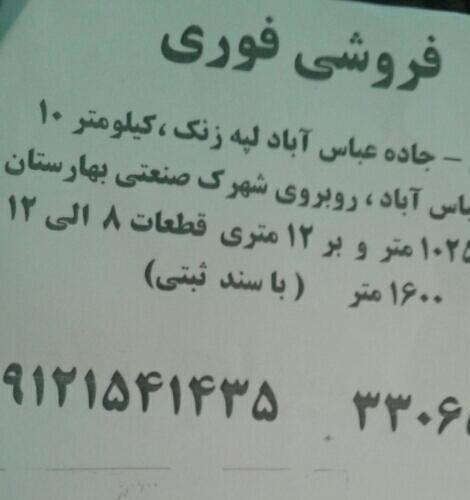 فروشی فوری
– جاده عباس آباد لپه زنک ، کیلومتر ۱۰
باس آباد ، روبروی شهرک صنعتی بهارستان
۱۰۲۵ متر و بر ۱۲ متری قطعات ۸ الی ۱۲
۱۶۰۰ متر (با سند ثبتی)
۳۳۰۶ ۹۱۲۱۵۴۱۴۳۵